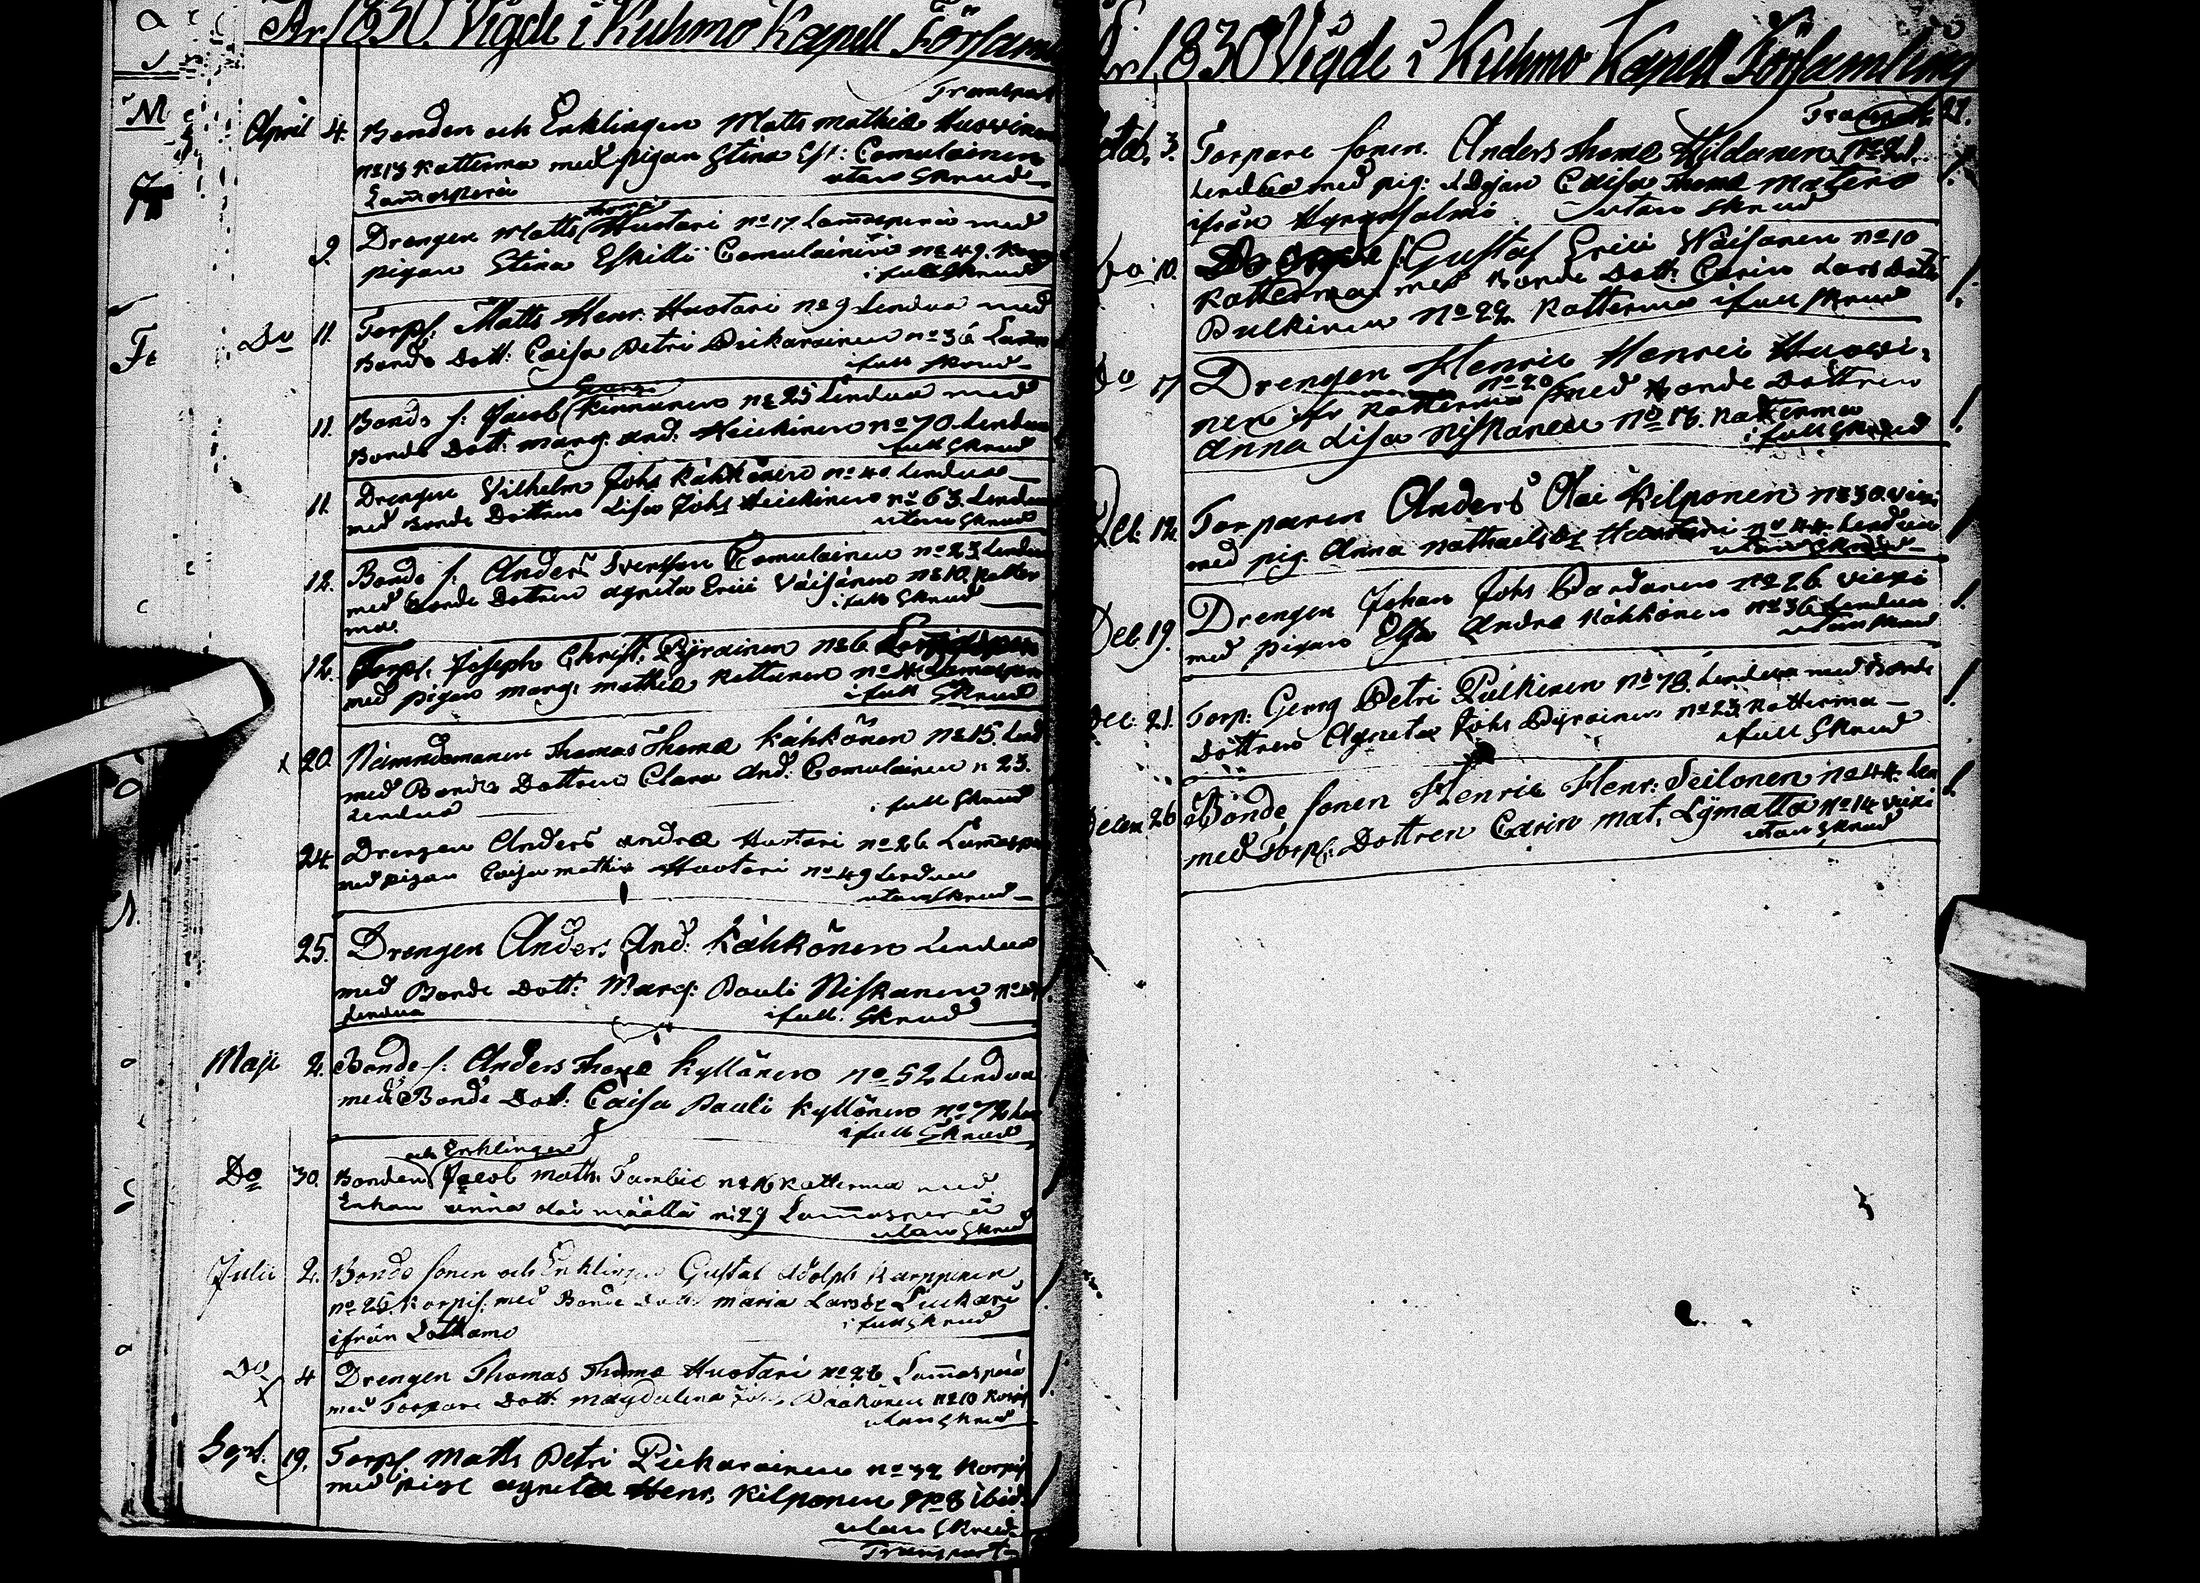 År 1830. Vigde i Kuhmo Kapell Församl
Transport
April 4. Bonden och Enklingen Matts Mathiæ Huovinen
No 13 Katterma med pigan Stina Esk: Comulainen
Lammasperä utan Skrud
9. Drengen Matts Huotari No 17 Lammasperä med
pigan Stina Eskilli Comulainen No 49.
i full Skrud
Do 11. Torps. Matts Henr. Huotari No 9 Lendua med
Bonde Dott: Caisa Petri Piikarainen No 36
i full Skrud
11. Bonde s: Jacob Kinnunen No 25 Lendua med
Bonde Dott: Marg: And: Heickinen No 70 Lendua
i full Skrud
11. Drengen Vilhelm Johs Kähkönen No 40 Lendua
med Bonde Dottren Lisa Johs Heickinen No 63. Lendua
utan Skrud
12. Bonde s: Anders Svensson Comulainen No 23 Lendua
med Bonde Dottren Agneta Erici Väisänen No 10. Katter
ma. i full Skrud
12. Torps. Joseph Christ: Pyräinen No 6
med pigan Marg: Mathiæ Kettunen No 4 Lamasper
i full Skrud
x 20. Nämndemannen Thomas Thomæ Kähkönen No 15. Lend
med Bonde Dottren Clara And: Comulainen n 23.
Lendua i full Skrud
24. Drengen Anders Andræ Huotari No 26 Lamasp
med pigan Caisa Mathiæ Huotari No 49 Lendua
utan Skrud
25. Drengen Anders And: Kähkönen Lendua
med Bonde Dott: Marg: Pauli Niskanen No
Lendua i full. Skrud
Maji 2. Bonde s: Anders Thomæ Kyllönen No 52 Lendua
med Bonde Dott: Caisa Pauli Kyllönen No 72 Len
i full Skrud
och Enklingen
Do 30. Bonden Jacob Math: Tambie No 16 Katterma med
Enkan Anna Olai Määttä No 29 Lammasperä
utan Skrud
Julii 2. Bonde sonen och Enklingen Gustaf Adolph Karppinen
No 25. Korpis: med Bonde Dott Maria Larsdr
ifrån Sotkamo i full Skrud
Do x 4 Drengen Thomas Thomæ Huotari No 26 Lammasperä
med Torpare Dott: Magdalena Johs Pääkönen No 10 Korp
utan Skrud
Sept. 19. Torps. Matts Petri Piikarainen No 32 Korpis
med pige Agneta Henr. Kilponen No 8 ibid.
utan Skrud
Transport
År 1830 Vigde i Kuhmo Kapell Församling
Transp. 27.
Octob. 3. Torpare sonen. Anders Thomæ Hildanen No 21.
Lendua med pig: Caisa Thomæ Matero
ifrån Hyrynsalmi utan Skrud
Do 10. Gustaf Erici Väisänen No 10
Katterma med Bonde Dott: Carin Lars Dotter
Pulkinen No 29. Katterma i full Skrud
Do 17 Drengen Henric Henrici Huovi-
nen ifr Katterma No 20 med Bonde Dottren
Anna Lisa Niskanen No 16. Katterma
i full Skrud
Dec. 12. Torparen Anders Olai Kilponen No 30. Vieki
med pig. Anna Nathaelsdr Huotari No 44. Lendua
utan Skrud
Dec. 19. Drengen Johan Johs Pardanen No 26 Vieki
med pigan Elsa Andræ Kähkönen No 36 Lendua
utan Skrud
Dec. 21. Torp: Georg Petri Pulkinen No 78. Lendua med Bonde
Dottren Agneta Johs Pyräinen No 23 Katterma
i full Skrud
Decem. 26 Bonde sonen Henric Henr: Seilonen No 44. Len
med Torps: Dottren Carin Mat. Lÿmatta No 14 Vieki
utan Skrud